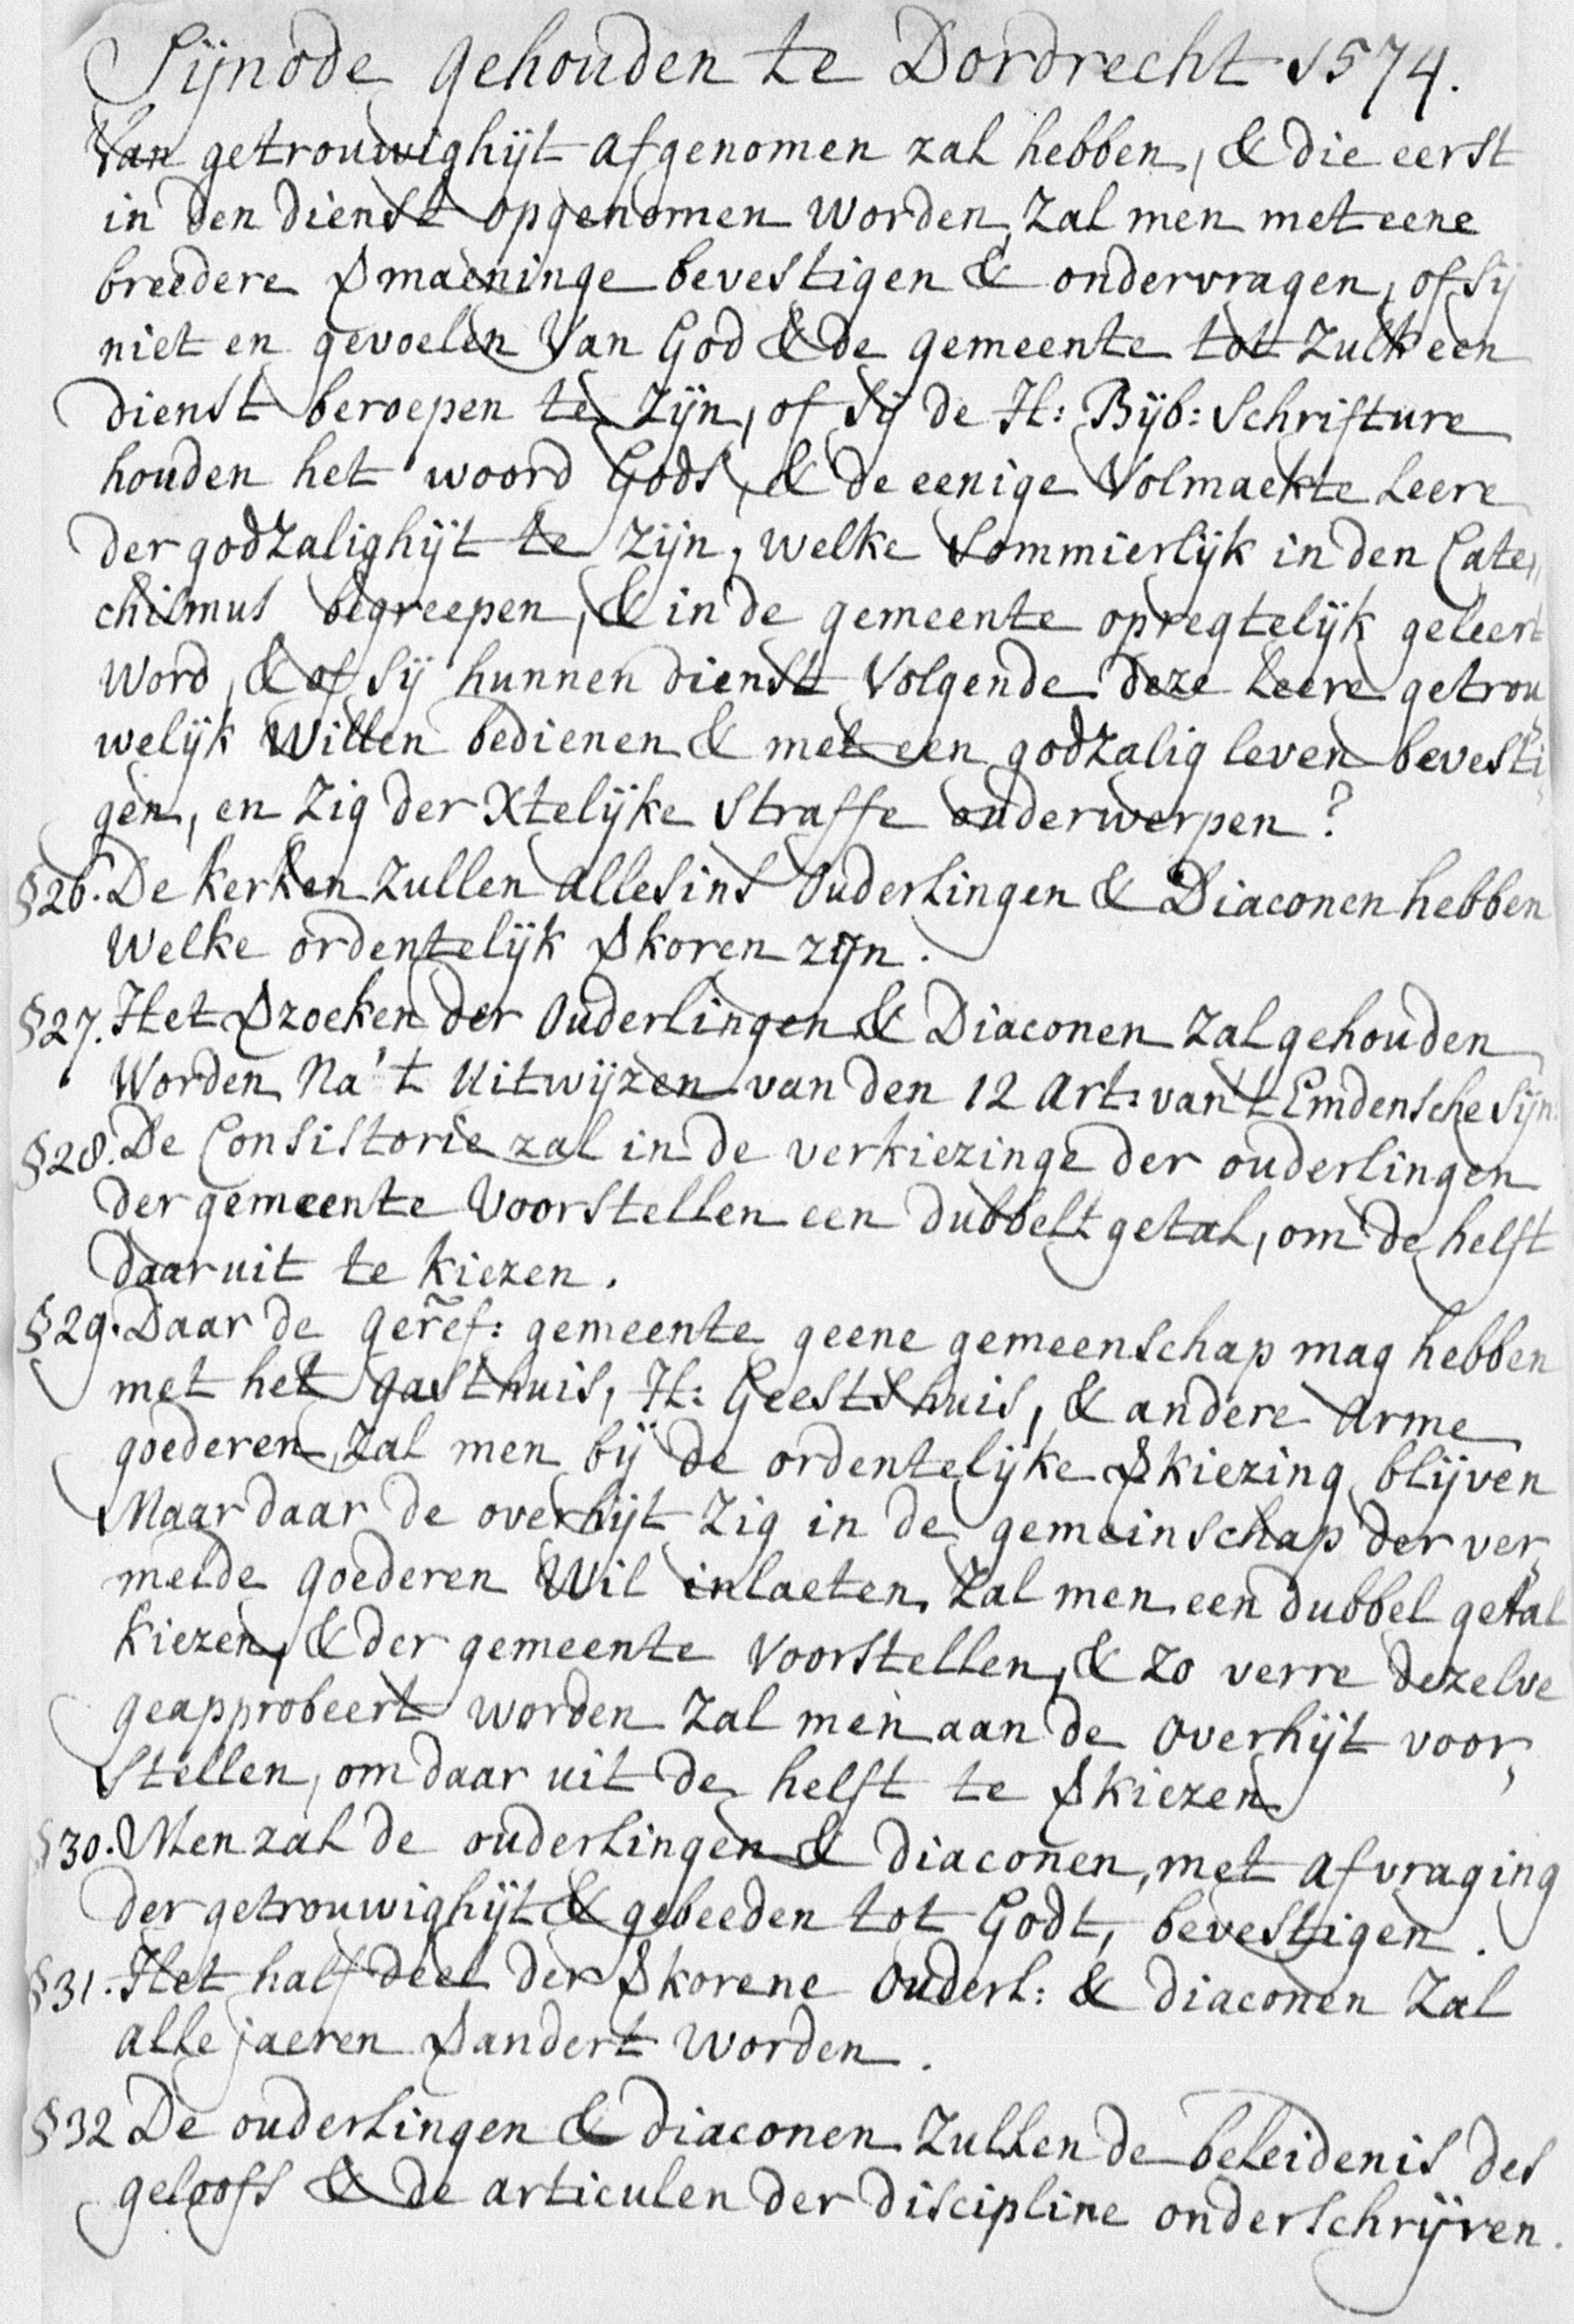 Sijnode gehouden te Dordrecht 1574.
Van getrouwighijt afgenomen zal hebben, & die eerst
in den dienst opgenomen worden, zal men met eene
breedere ꝟmaeninge bevestigen & ondervragen, of sij
niet en gevoelen Van God & de gemeente tot zulk een
dienst beroepen te zijn, of sij de H: Bijb: schrifture
houden het woord Gods, & de eenige Volmaekte Leere
der godzalighijt te zijn, welke sommierlijk in den Cate„
chismus begreepen, & in de gemeente opregtelijk geleert
word, & of sij hunnen dienst Volgende deze Leere getrou
welijk willen bedienen & met een godzalig leven bevesti
gen, en zig der Xtelijke straffe onderwerpen?
§26. De kerken zullen allesins Ouderlingen & Diaconen hebben
welke ordentelijk ꝟkoren zijn.
§27. Het ꝟzoeken der Ouderlingen & Diaconen zal gehouden
Worden Na't uitwijzen van den 12 Art: van't Emdensche Sijn:
§28. De Consistorie zal in de verkiezinge der ouderlingen
der gemeente voorstellen een dubbelt getal, om de helft
daaruit te kiezen.
§29. Daar de gerẽf: gemeente geene gemeenschap mag hebben
met het gasthuis, H: Geestshuis, & andere Arme
goederen, zal men bij de ordentelijke ꝟkiezing blijven
Maar daar de overhijt zig in de gemeinschap der ver,
melde goederen Wil inlaeten, zal men een dubbel getal
kiezen, & der gemeente voorstellen, & zo verre dezelve
geapprobeert worden zal men aan de Overhijt voor,
stellen, om daar uit de helft te ꝟkiezen
§30. Men zal de ouderlingen & diaconen, met afvraging
der getrouwighijt & gebeeden tot Godt, bevestigen.
§31. Het half deel der ꝟkorene Ouderl: & diaconen zal
alle jaeren ꝟandert worden.
§32 De ouderlingen & diaconen zullen de beleidenis des
geloofs & de articulen der discipline onderschrijven.